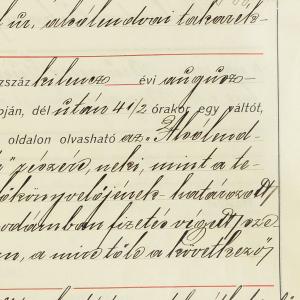 úr, alsólendvai takarék-
zszáz kilencz évi augusz-
pján, dél után 4 1/2 órakor egy váltót,
oldalon olvasható az „Alsólend-
részére, neki, mint a te-
könyvelőjének határozott
irodámban fizetés végett
n, a mire tőle a következő